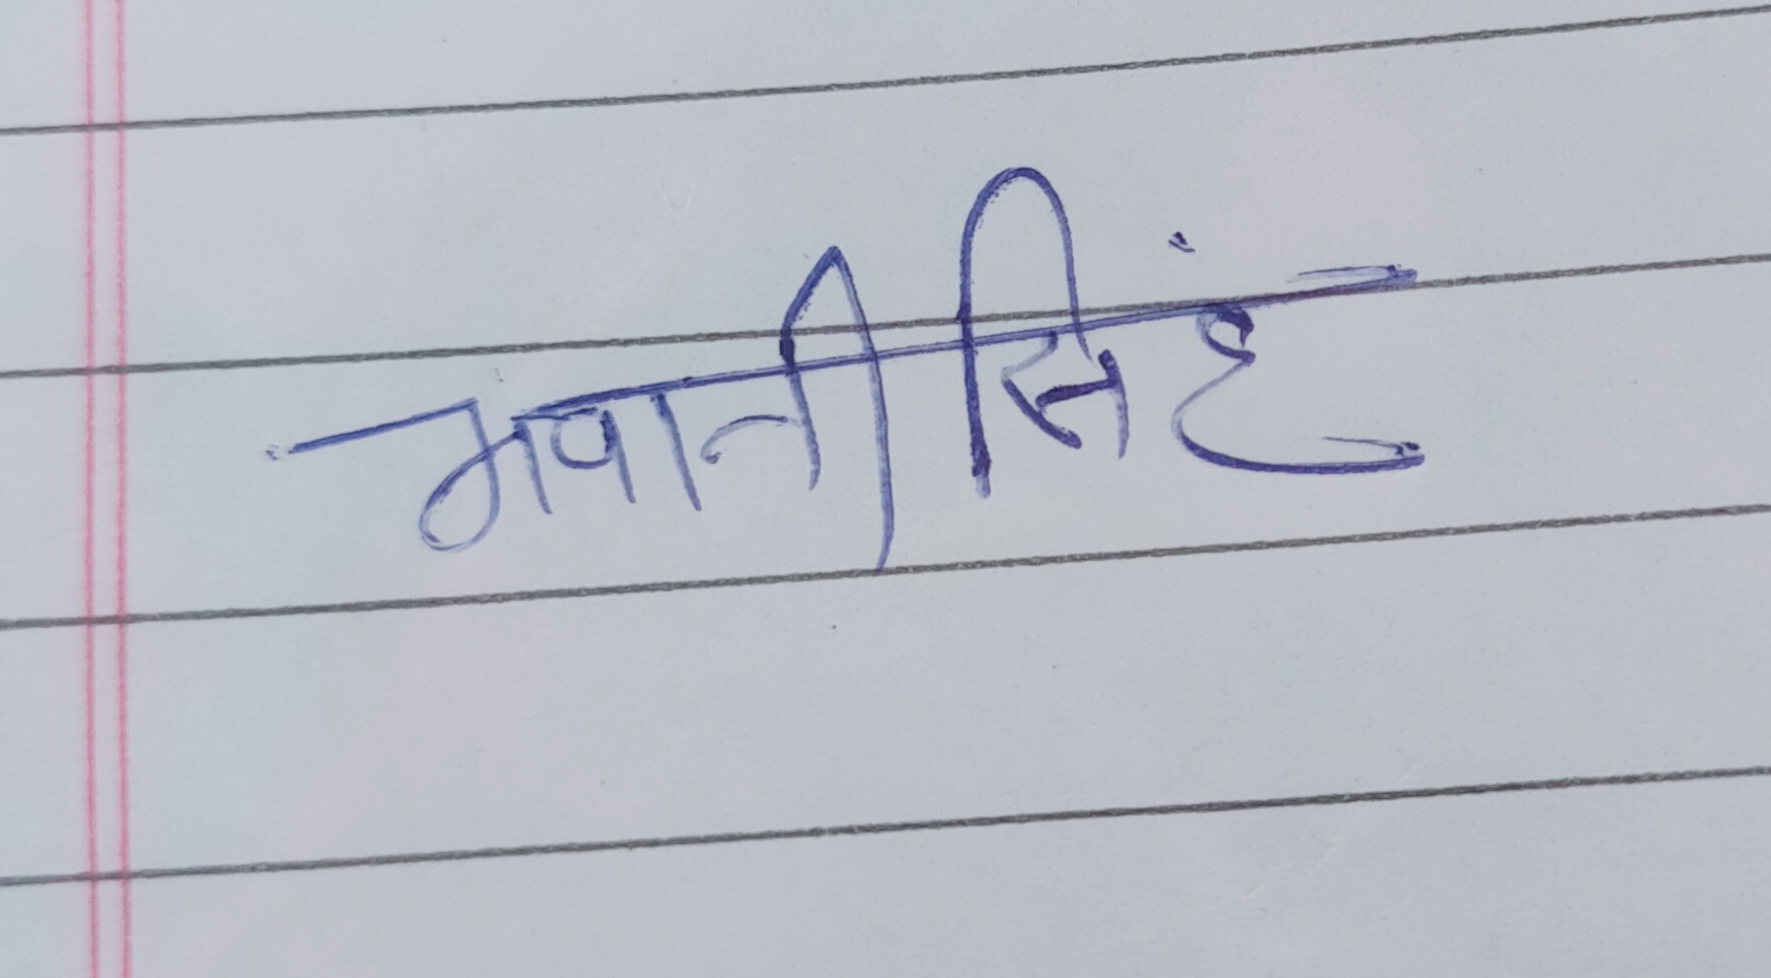 भवानी सिंह